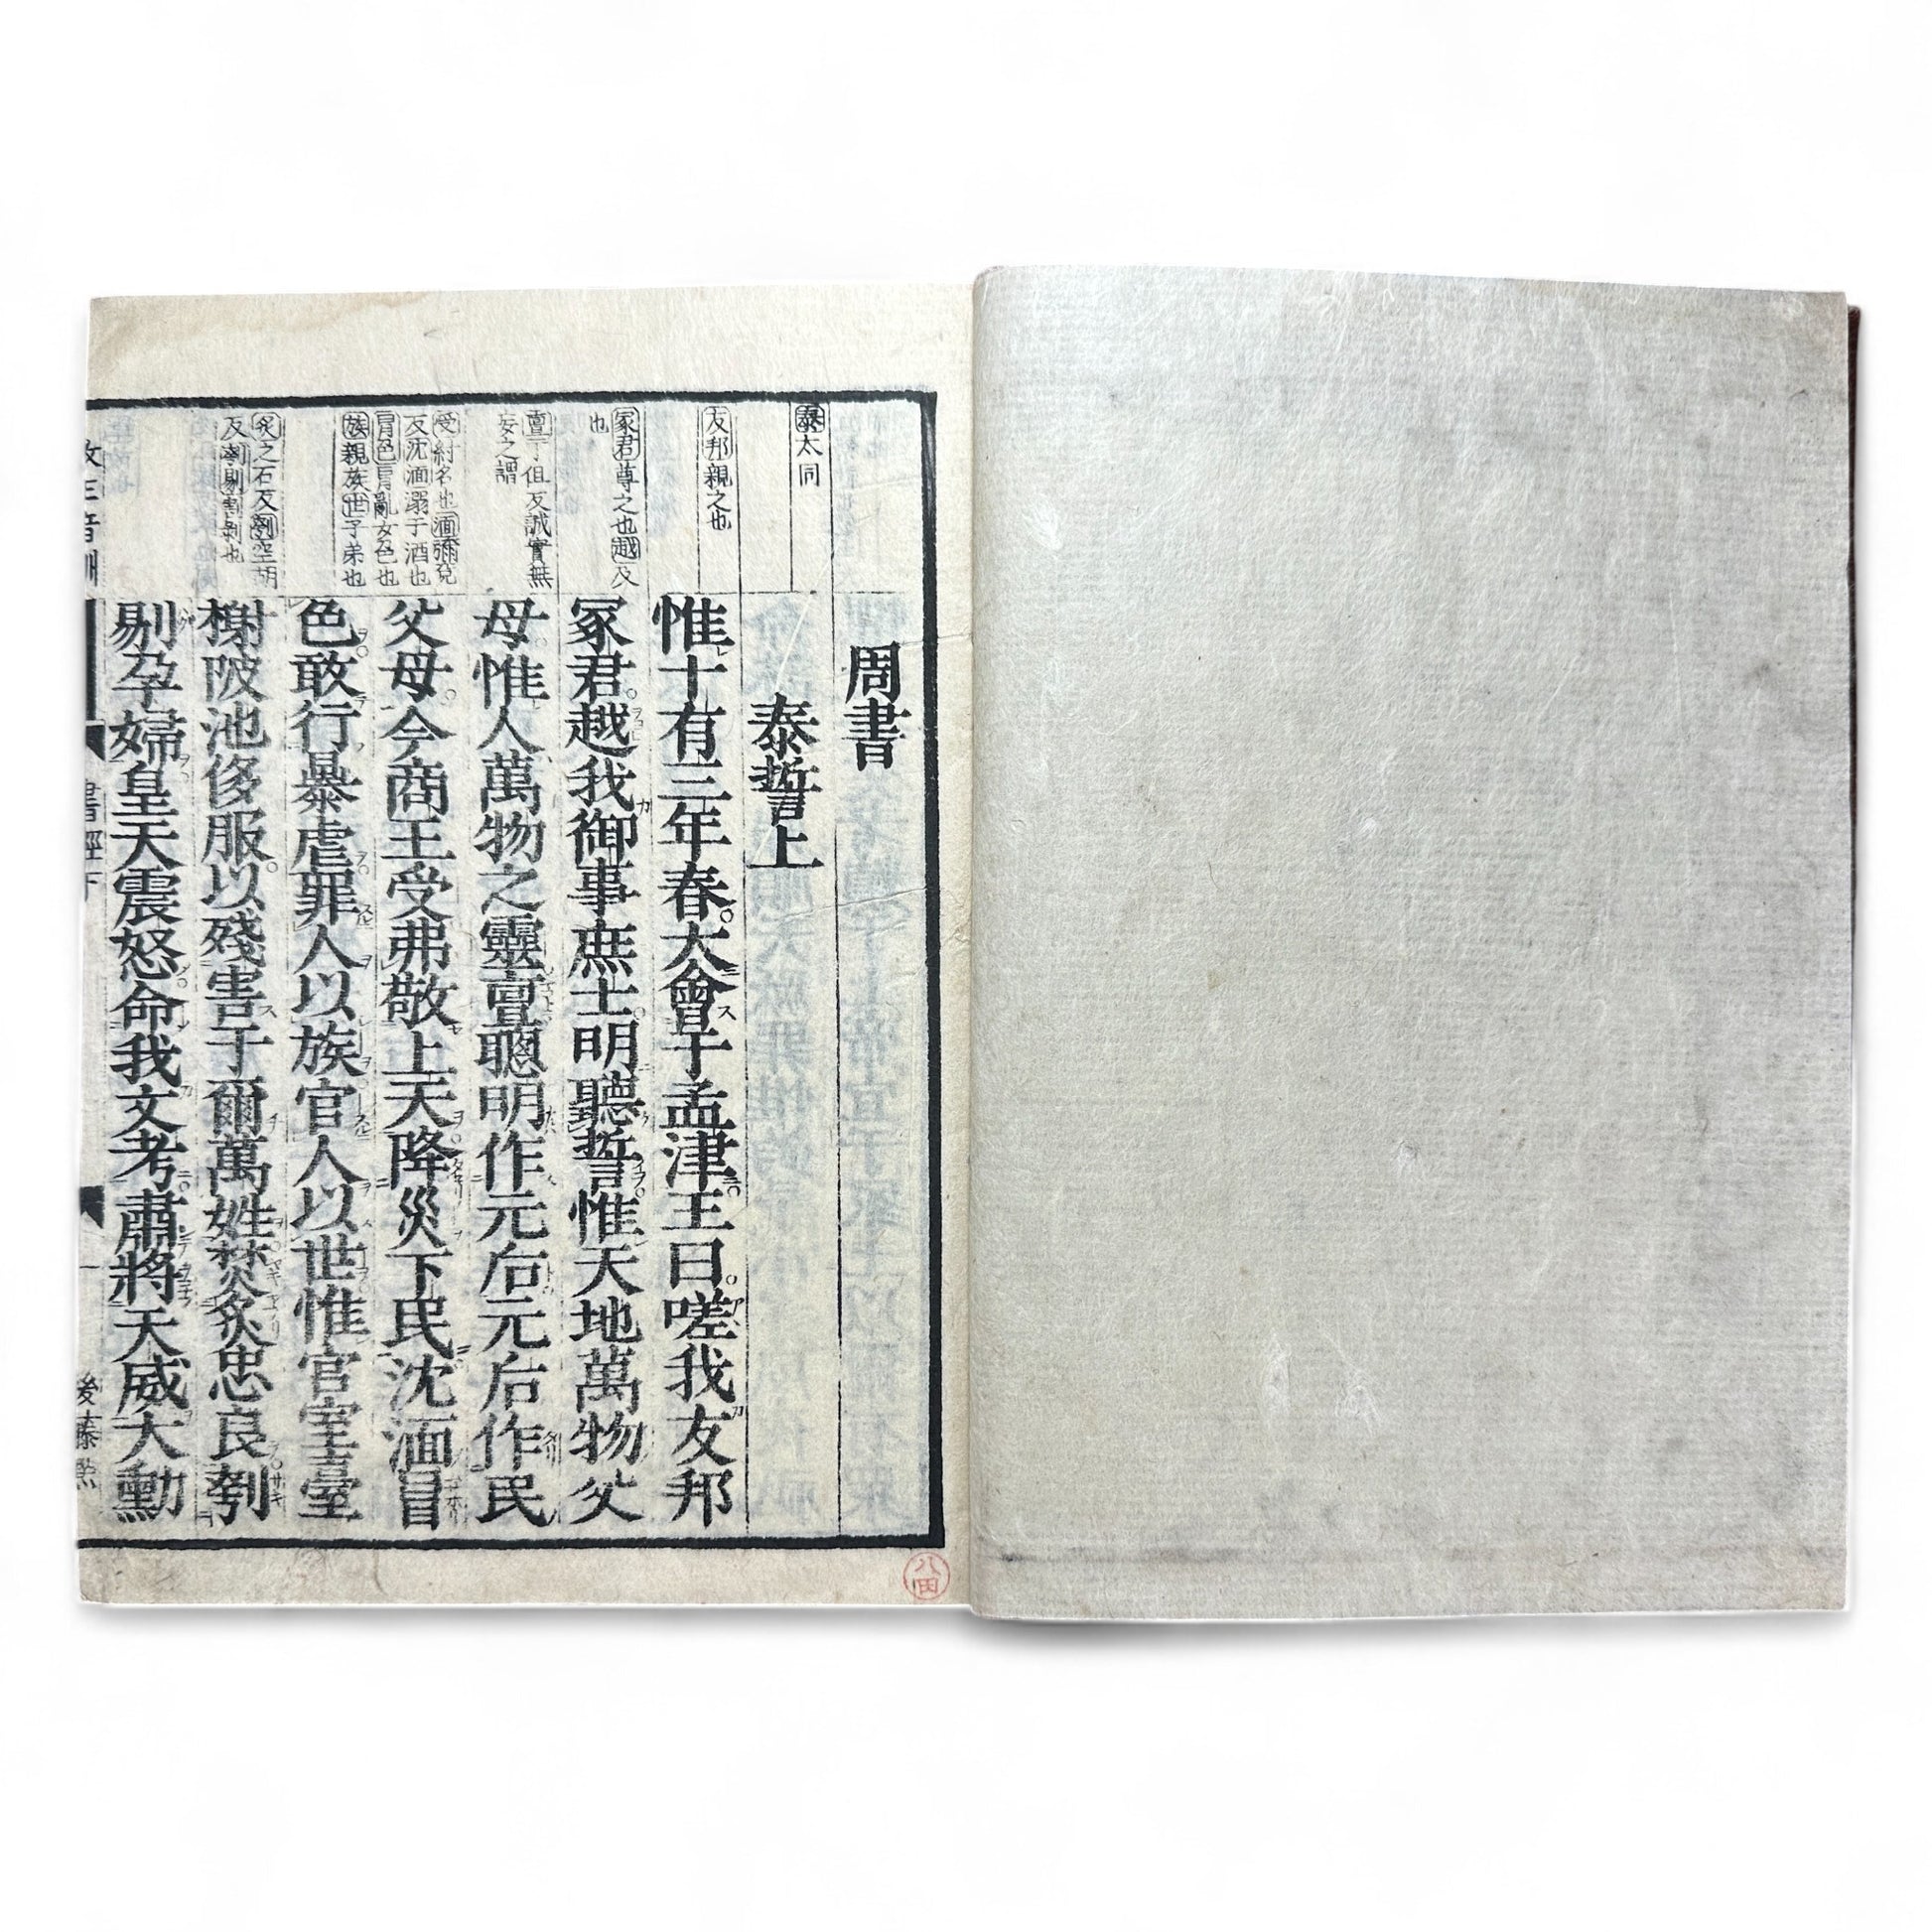 周書
泰誓上
惟十有三年春大會于孟津王曰嗟我友邦
冢君越我御事庶士明聽誓惟天地萬物父
母惟人萬物之靈亶聰明作元后元后作民
父母今商王受弗敬上天降災下民沈湎冒
色敢行暴虐罪人以族官人以世惟宮室臺
榭陂池侈服以殘害于爾萬姓焚炙忠良刳
剔孕婦皇天震怒命我文考肅將天威大勳
泰太同
友邦親之也
冢君尊之也越及
也
亶丁但反誠實無
妄之謂
受紂名也湎彌兗
反沈湎溺于酒也
冒色冒亂女色也
族親族世子弟也
炙之石反刳空胡
反刳剔割剝也
書經下
一
後藤點
八田